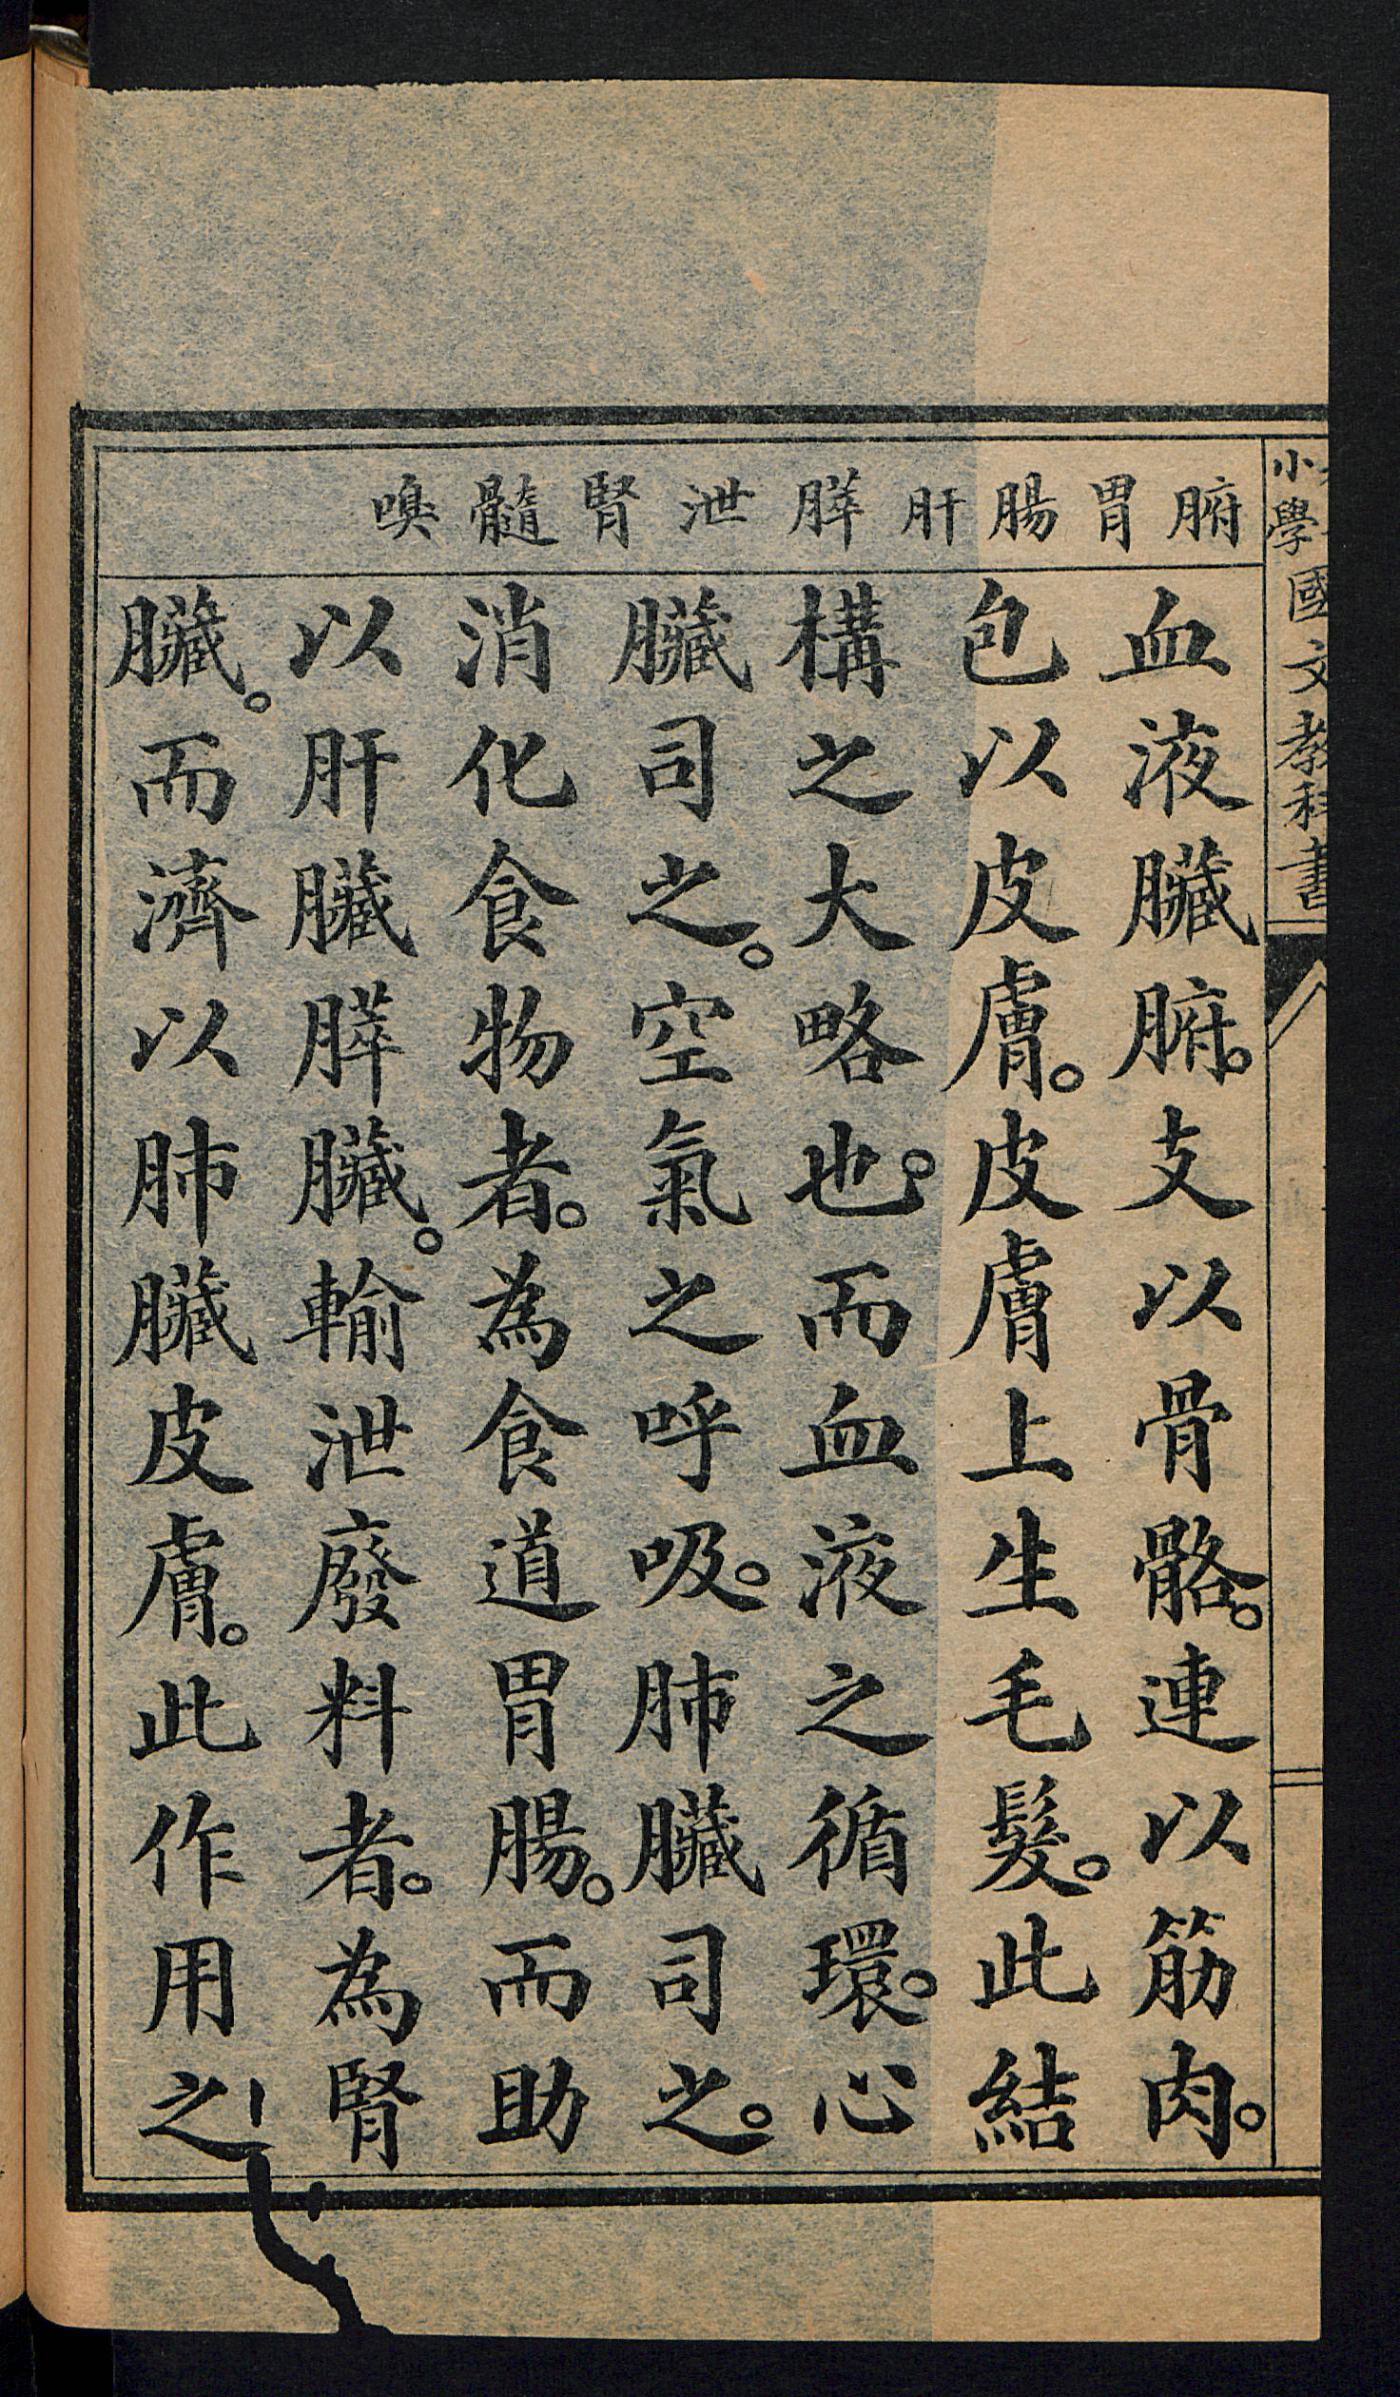 小學國文教科書
腑胃腸肝膵泄腎髓嗅
血液臟腑。支以骨骼。連以筋肉。
包以皮膚。皮膚上生毛髮。此結
構之大略也。而血液之循環。心
臟司之。空氣之呼吸。肺臟司之。
消化食物者。為食道胃腸。而助
以肝臟膵臟。輸泄廢料者。為腎
臟。而濟以肺臟皮膚。此作用之